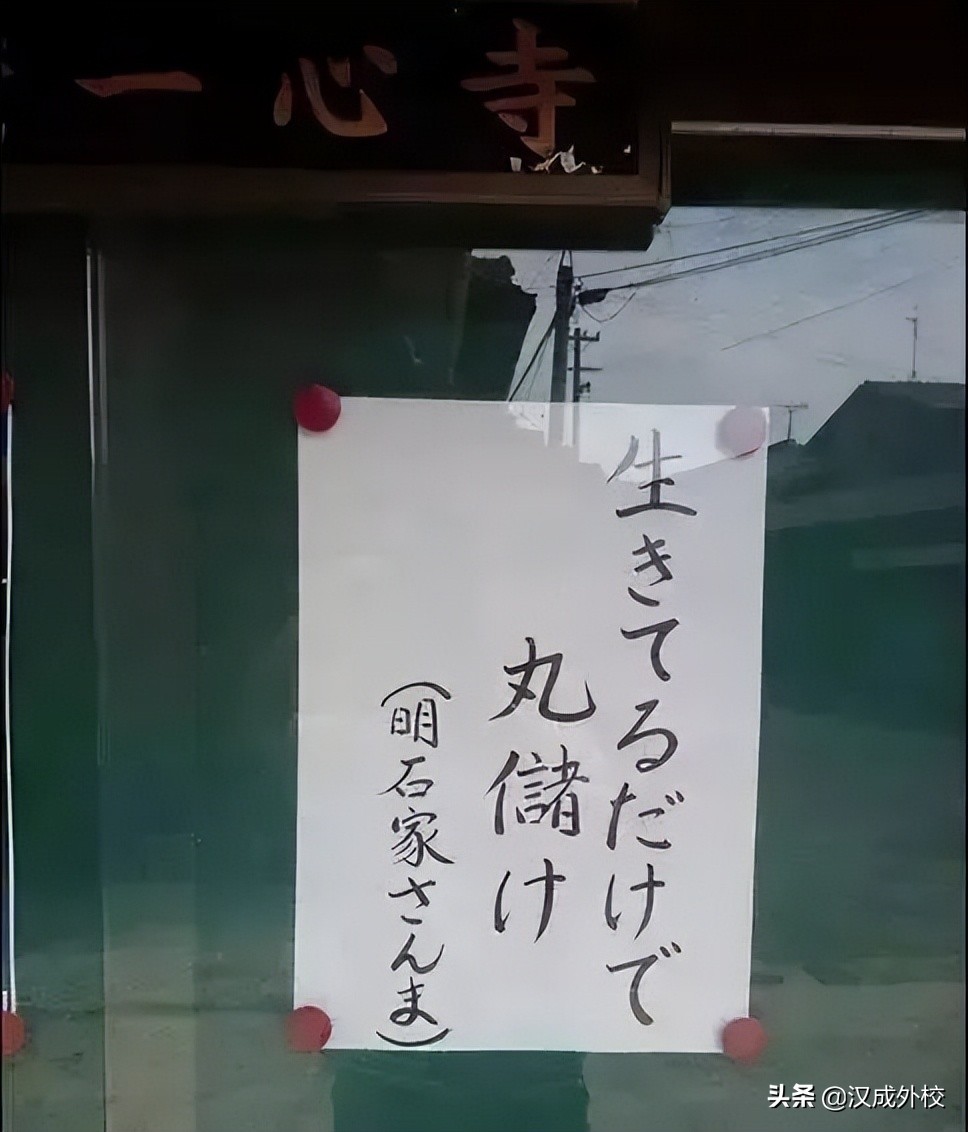 一心寺
生きてるだけで
丸儲け
(明石家さんま)
头条 @汉成外校